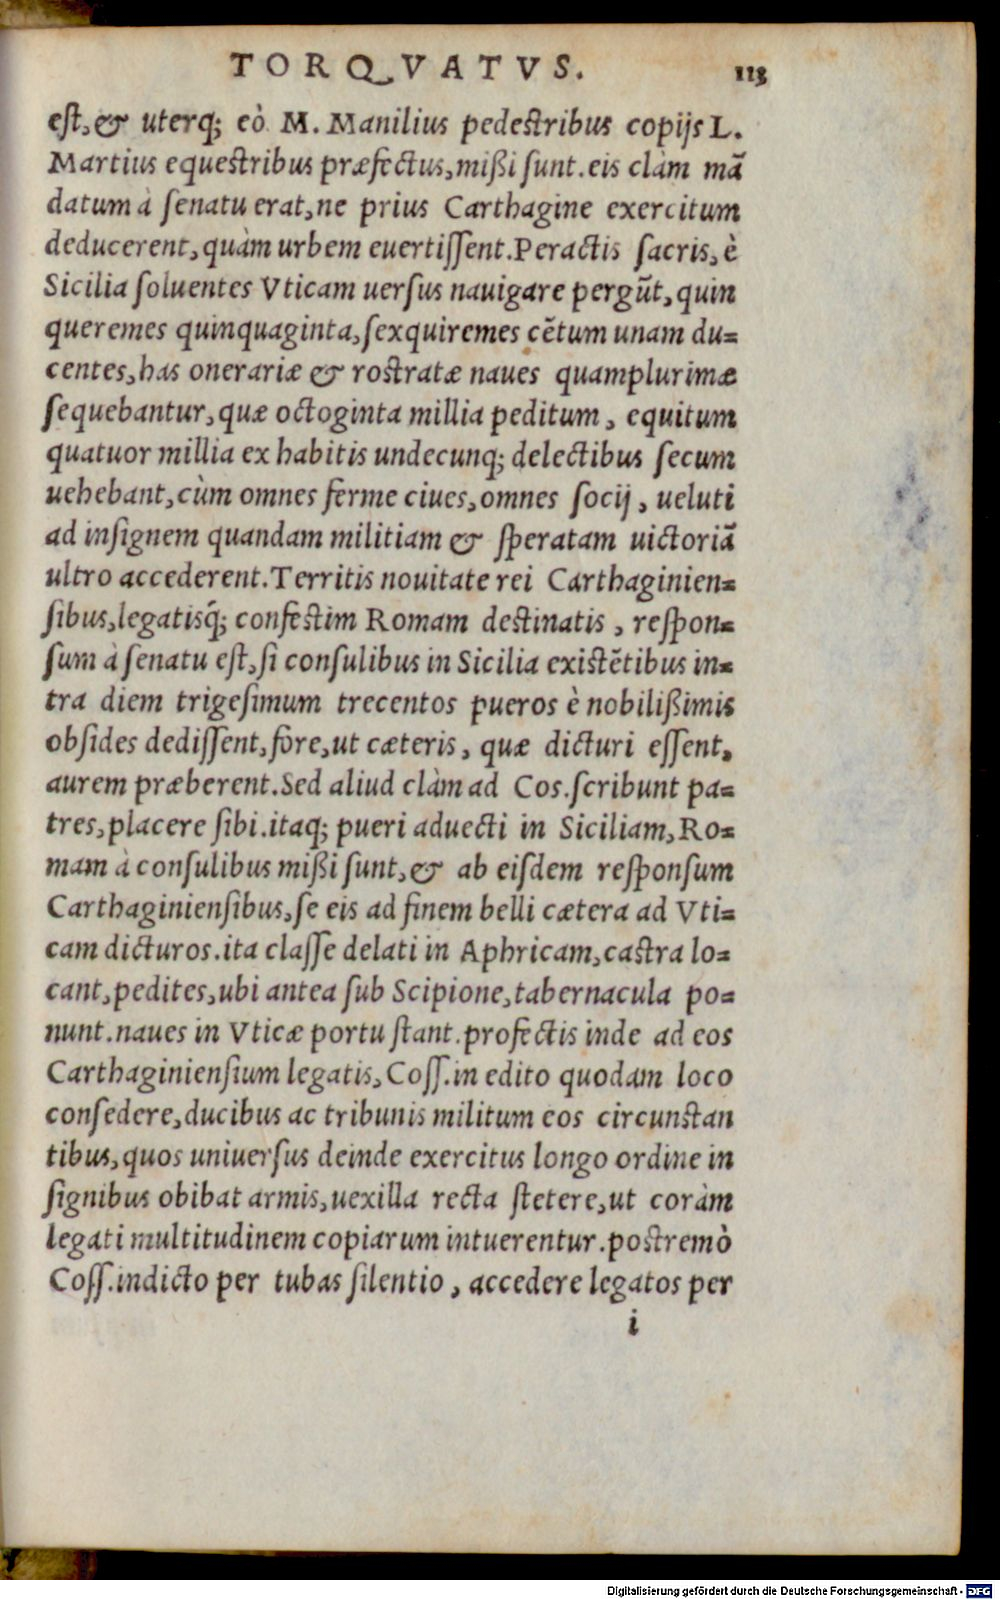 TORQVATVS. 113
est, & uterq; eò M. Manilius pedestribus copijs L.
Martius equestribus præfectus, mißi sunt. eis clàm mā
datum à senatu erat, ne prius Carthagine exercitum
deducerent, quàm urbem euertissent. Peractis sacris, è
Sicilia soluentes Vticam uersus nauigare pergūt, quin
queremes quinquaginta, sexquiremes cētum unam du=
centes, has onerariæ & rostratæ naues quamplurimæ
sequebantur, quæ octoginta millia peditum, equitum
quatuor millia ex habitis undecunq; delectibus secum
uehebant, cùm omnes ferme ciues, omnes socij, ueluti
ad insignem quandam militiam & speratam uictoriā
ultro accederent. Territis nouitate rei Carthaginien=
sibus, legatisq́; confestim Romam destinatis, respon=
sum à senatu est, si consulibus in Sicilia existētibus in=
tra diem trigesimum trecentos pueros è nobilißimis
obsides dedissent, fore, ut cæteris, quæ dicturi essent,
aurem præberent. Sed aliud clàm ad Cos. scribunt pa=
tres, placere sibi. itaq; pueri aduecti in Siciliam, Ro=
mam à consulibus mißi sunt, & ab eisdem responsum
Carthaginiensibus, se eis ad finem belli cætera ad Vti=
cam dicturos. ita classe delati in Aphricam, castra lo=
cant, pedites, ubi antea sub Scipione, tabernacula po=
nunt. naues in Vticæ portu stant. profectis inde ad eos
Carthaginiensium legatis, Coss. in edito quodam loco
consedere, ducibus ac tribunis militum eos circunstan
tibus, quos uniuersus deinde exercitus longo ordine in
signibus obibat armis, uexilla recta stetere, ut coràm
legati multitudinem copiarum intuerentur. postremò
Coss. indicto per tubas silentio, accedere legatos per
i
Digitalisierung gefördert durch die Deutsche Forschungsgemeinschaft - DFG